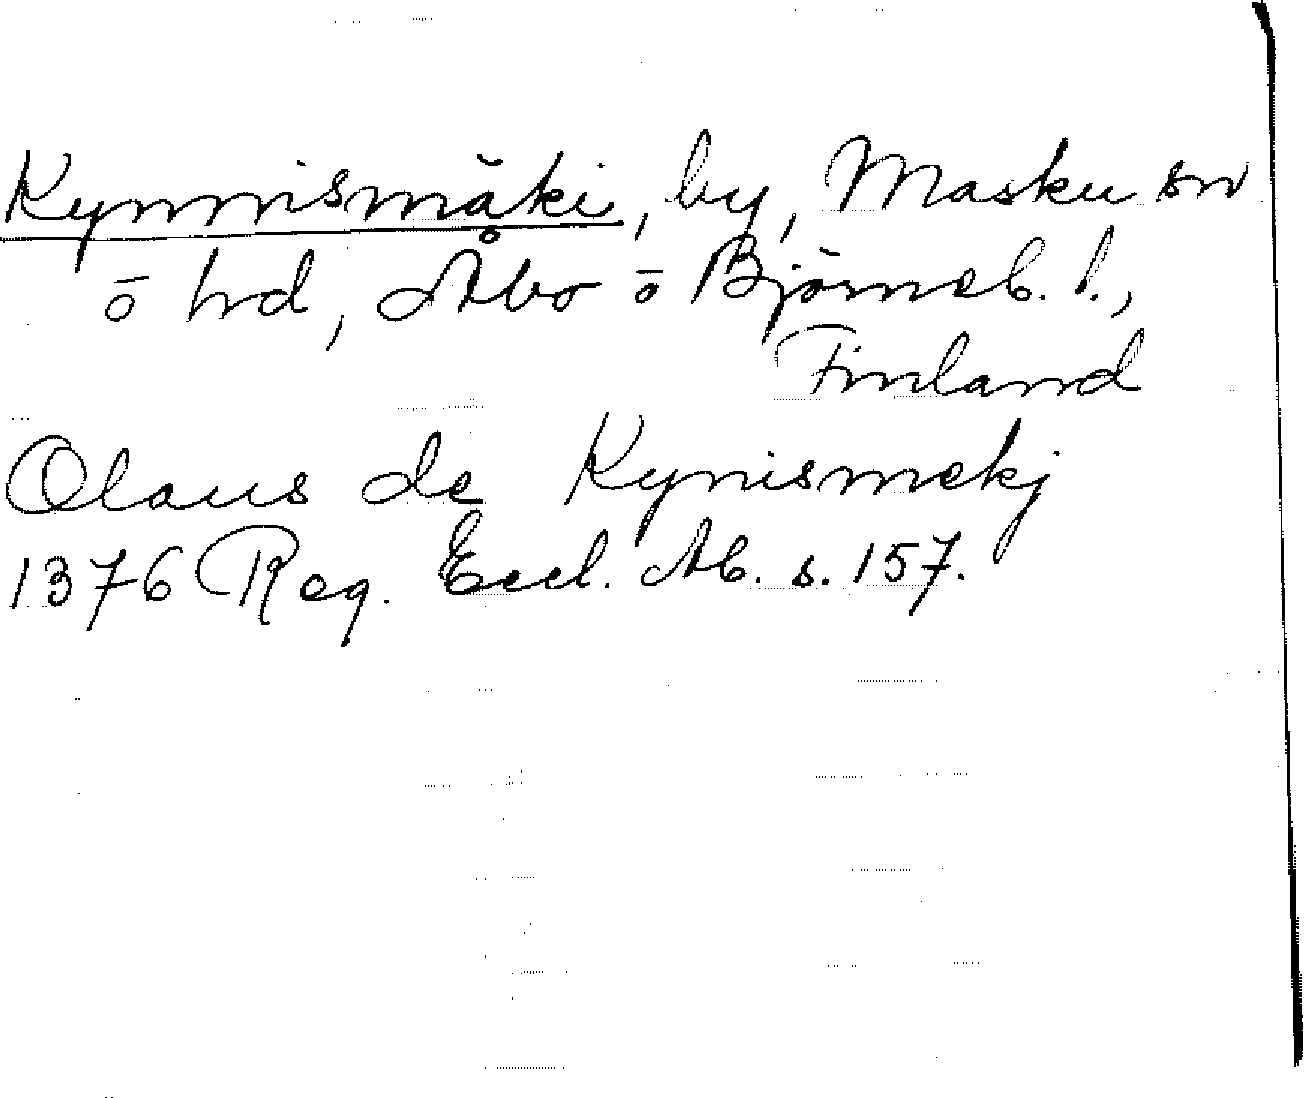 Kynnismäki, by, Masku sn
ō hd, Åbo ō Björneb. l.,
Finland
Olaus de Kynismekj
1376 Reg. Eccl. Ab. s. 157.